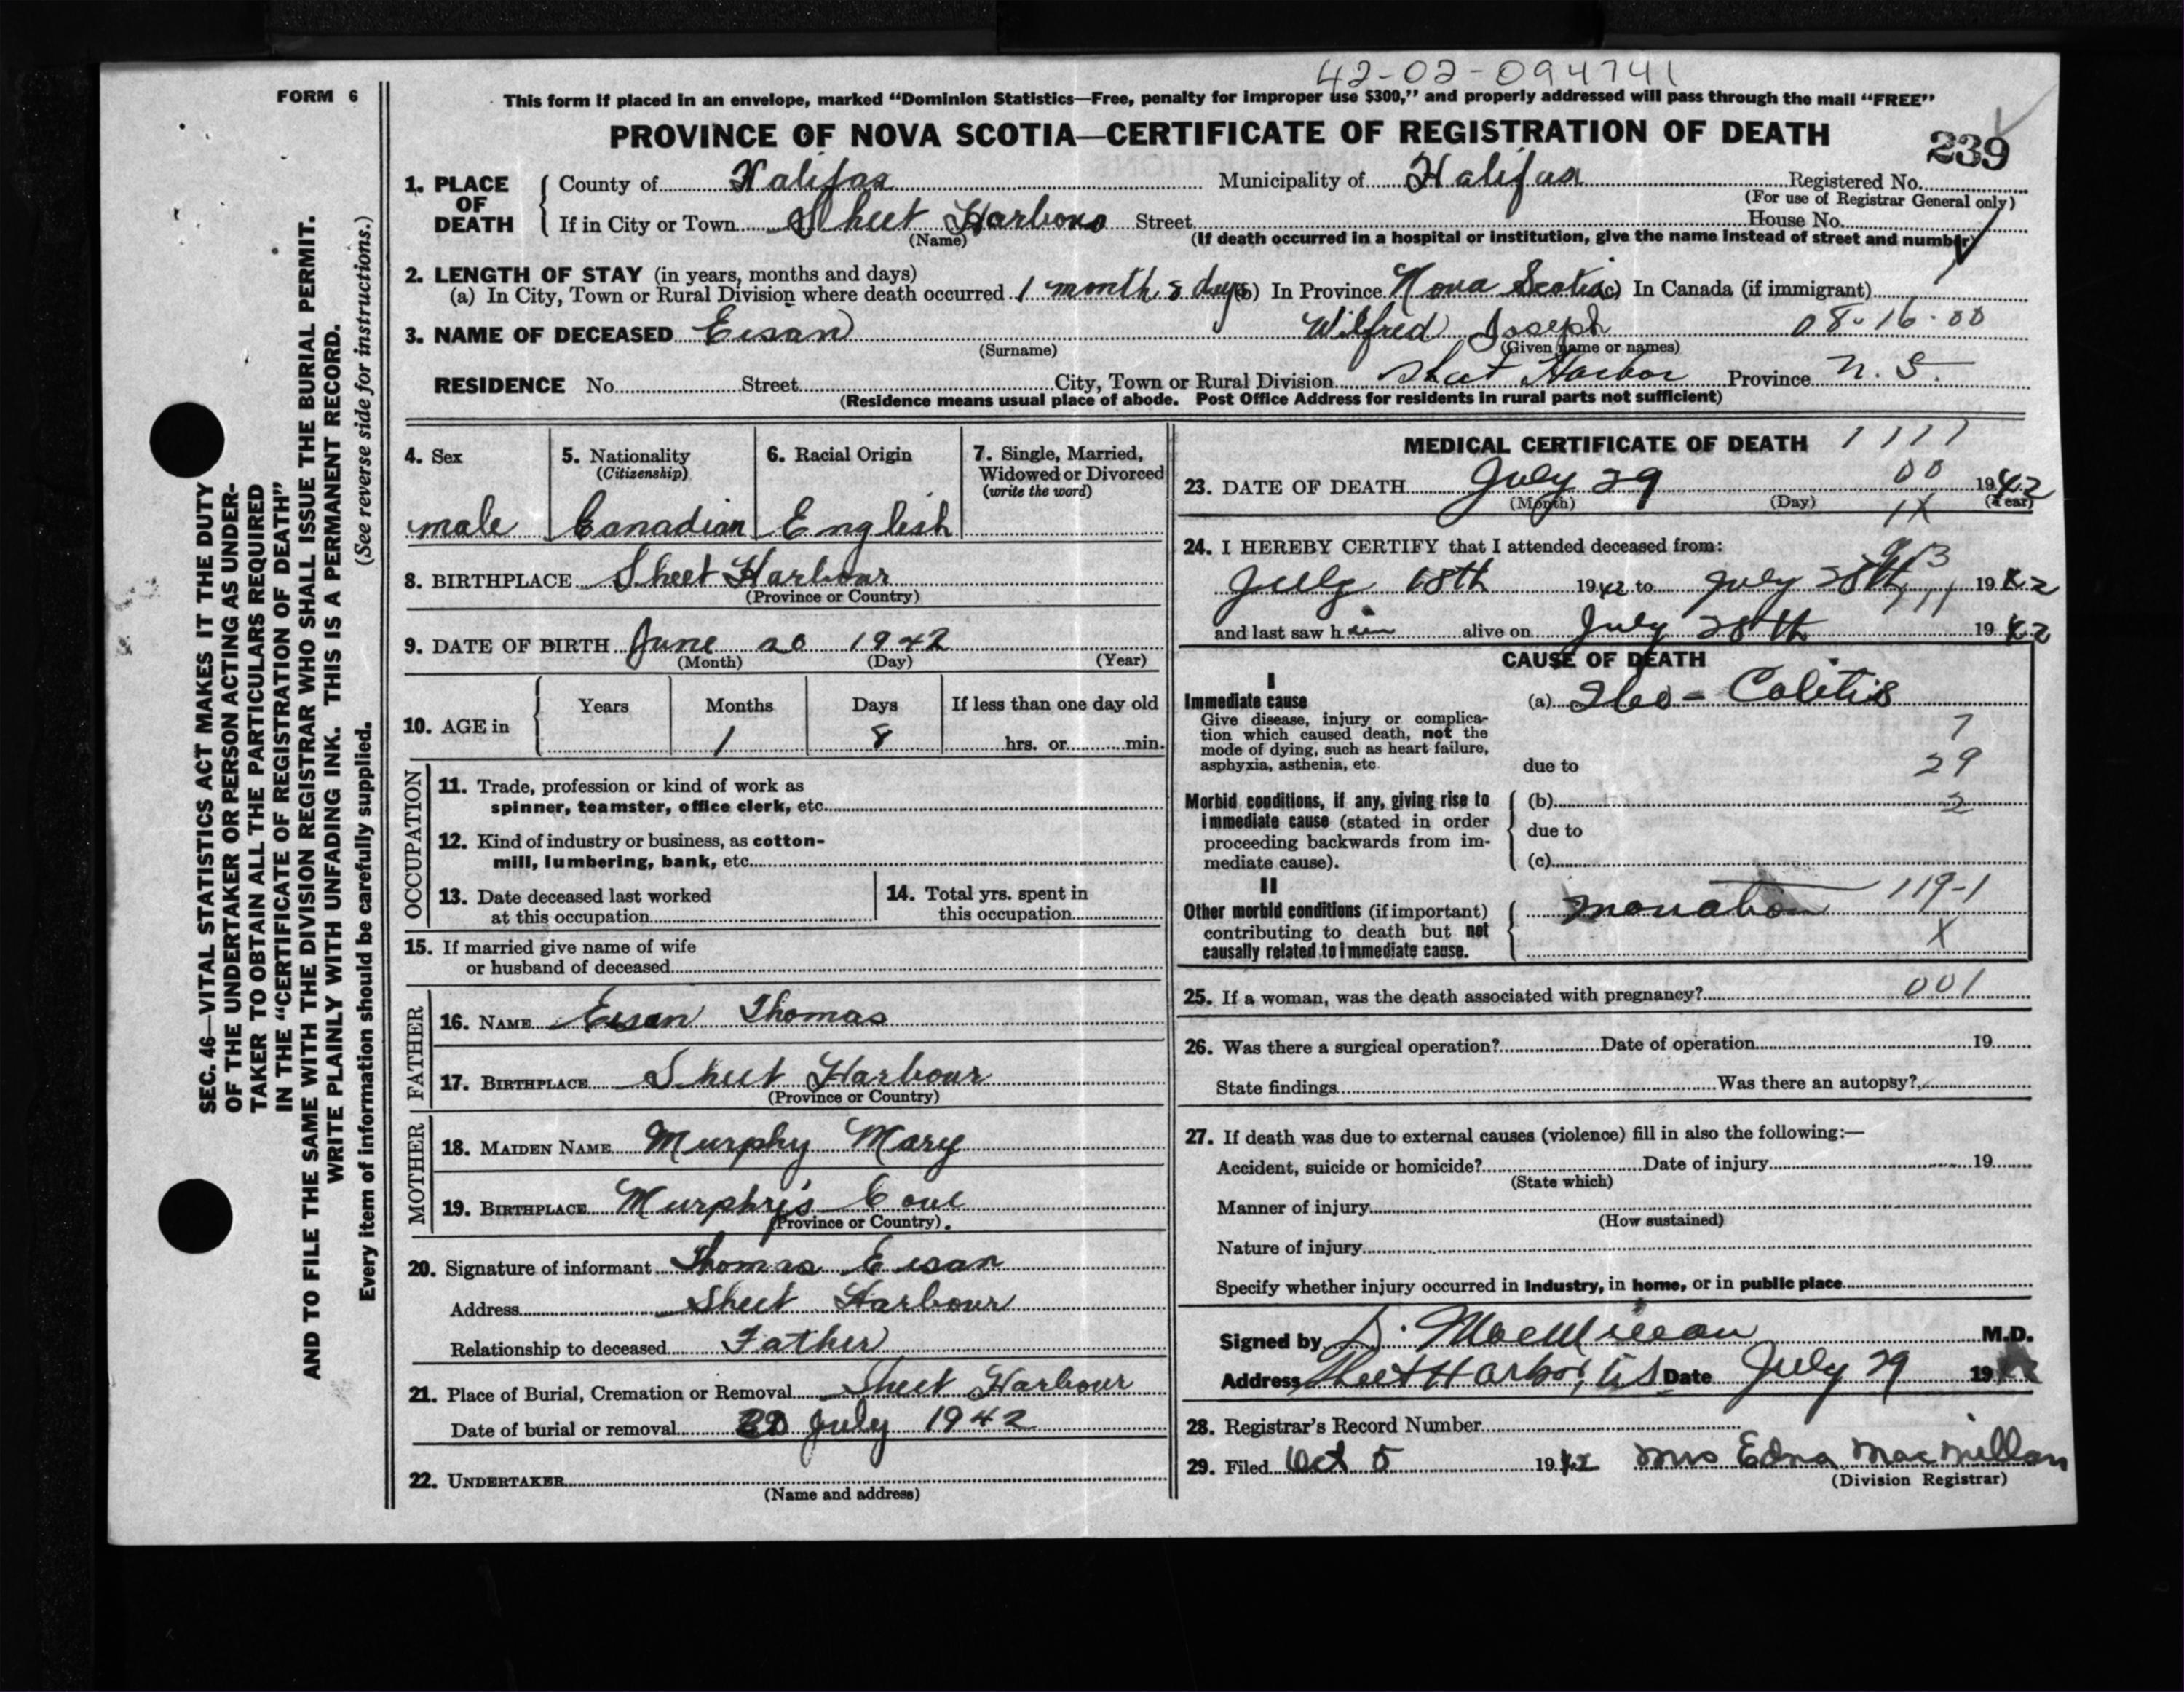 42-02-094741
FORM 6
This form if placed in an envelope, marked “Dominion Statistics—Free, penalty for improper use $300,” and properly addressed will pass through the mail “FREE”
PROVINCE OF NOVA SCOTIA—CERTIFICATE OF REGISTRATION OF DEATH
239
1. PLACE OF DEATH
County of Halifax Municipality of Halifax Registered No.
(For use of Registrar General only)
If in City or Town Sheet Harbour Street House No.
(Name) (If death occurred in a hospital or institution, give the name instead of street and number)
2. LENGTH OF STAY (in years, months and days)
(a) In City, Town or Rural Division where death occurred 1 month 8 days (b) In Province Nova Scotia (c) In Canada (if immigrant)
3. NAME OF DECEASED Eisan Wilfred Joseph 08-16-00
(Surname) (Given name or names)
RESIDENCE No. Street City, Town or Rural Division Sheet Harbor Province N. S.
(Residence means usual place of abode. Post Office Address for residents in rural parts not sufficient)
4. Sex
male
5. Nationality
(Citizenship)
Canadian
6. Racial Origin
English
7. Single, Married,
Widowed or Divorced
(write the word)
8. BIRTHPLACE Sheet Harbour
(Province or Country)
9. DATE OF BIRTH June 20 1942
(Month) (Day) (Year)
10. AGE in
Years Months Days If less than one day old
1 8 hrs. or min.
OCCUPATION
11. Trade, profession or kind of work as
spinner, teamster, office clerk, etc.
12. Kind of industry or business, as cotton-
mill, lumbering, bank, etc.
13. Date deceased last worked
at this occupation
14. Total yrs. spent in
this occupation
15. If married give name of wife
or husband of deceased
FATHER
16. NAME Eisan Thomas
17. BIRTHPLACE Sheet Harbour
(Province or Country)
MOTHER
18. MAIDEN NAME Murphy Mary
19. BIRTHPLACE Murphy's Cove
(Province or Country).
20. Signature of informant Thomas Eisan
Address Sheet Harbour
Relationship to deceased Father
21. Place of Burial, Cremation or Removal Sheet Harbour
Date of burial or removal July 1942
22. UNDERTAKER
(Name and address)
MEDICAL CERTIFICATE OF DEATH 1111
23. DATE OF DEATH July 29 00 1942
(Month) (Day) (Year)
1X
24. I HEREBY CERTIFY that I attended deceased from:
July 18th 1942 to July 28th 1942
and last saw him alive on July 28th 1942
CAUSE OF DEATH
I
Immediate cause
Give disease, injury or complica-
tion which caused death, not the
mode of dying, such as heart failure,
asphyxia, asthenia, etc.
(a) Ileo-Colitis
7
due to 29
Morbid conditions, if any, giving rise to
immediate cause (stated in order
proceeding backwards from im-
mediate cause).
(b) 2
due to
(c)
II
Other morbid conditions (if important)
contributing to death but not
causally related to immediate cause.
119-1
X
25. If a woman, was the death associated with pregnancy? 001
26. Was there a surgical operation? Date of operation 19
State findings Was there an autopsy?
27. If death was due to external causes (violence) fill in also the following:—
Accident, suicide or homicide? Date of injury 19
(State which)
Manner of injury
(How sustained)
Nature of injury
Specify whether injury occurred in industry, in home, or in public place
Signed by D. MacMillan M.D.
Address Sheet Harbor, NS Date July 29 19
28. Registrar's Record Number
29. Filed Oct 5 1942 Mrs Edna MacMillan
(Division Registrar)
SEC. 46—VITAL STATISTICS ACT MAKES IT THE DUTY
OF THE UNDERTAKER OR PERSON ACTING AS UNDER-
TAKER TO OBTAIN ALL THE PARTICULARS REQUIRED
IN THE “CERTIFICATE OF REGISTRATION OF DEATH”
AND TO FILE THE SAME WITH THE DIVISION REGISTRAR WHO SHALL ISSUE THE BURIAL PERMIT.
WRITE PLAINLY WITH UNFADING INK. THIS IS A PERMANENT RECORD.
Every item of information should be carefully supplied. (See reverse side for instructions.)